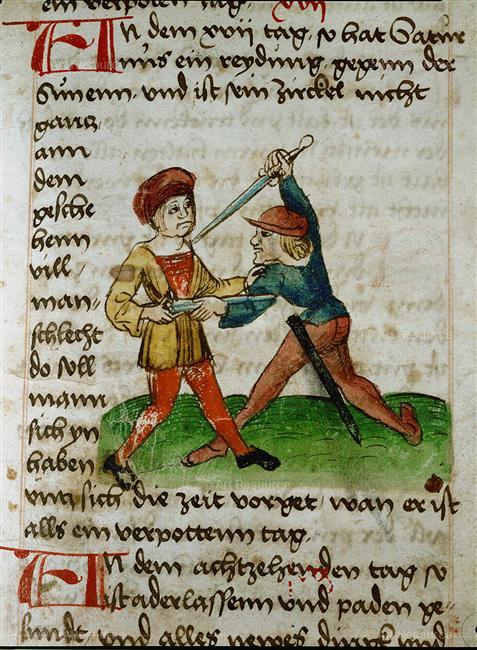 ein verpoten tag. xviij
In dem xvij tag, so hat Satur
nus ein reydung, gegenn der
Sunenn, vnd ist sein zirckel nicht
gantz
ann
dem
gesche
henn
vill
man-
schlecht
do soll
mann
sich yn
haben
vntz sich die zeit vorget, wan er ist
alls ein verpottenn tag.
In dem achtzehenden tag so
ist aderlassenn vnd paden ge-
sundt, vnd alles newes